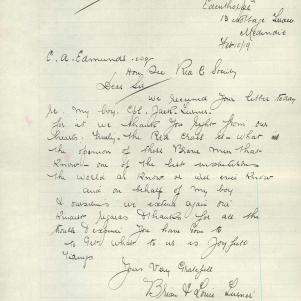 "Edenthorpe"
13 Nottage Street
Medindie
Feb 10/19
E. A. Edmunds esq
Hon. Sec Red C Society
Dear Sir
We received your letter today
re my boy. Cpl. Jack Turner.
for it we thank you right from our
hearts. Truly the Red Cross is what
the opinion of those Brave men that
know one of the best institutions
the World as know or will ever know
and on behalf of my boy
& ourselves we extend again our
kindest regards & thanks for all the
trouble & expense you have gone to
to get what to us is Joyfull
tidings
Yours Very Gratefull
Brian & Louie Turner